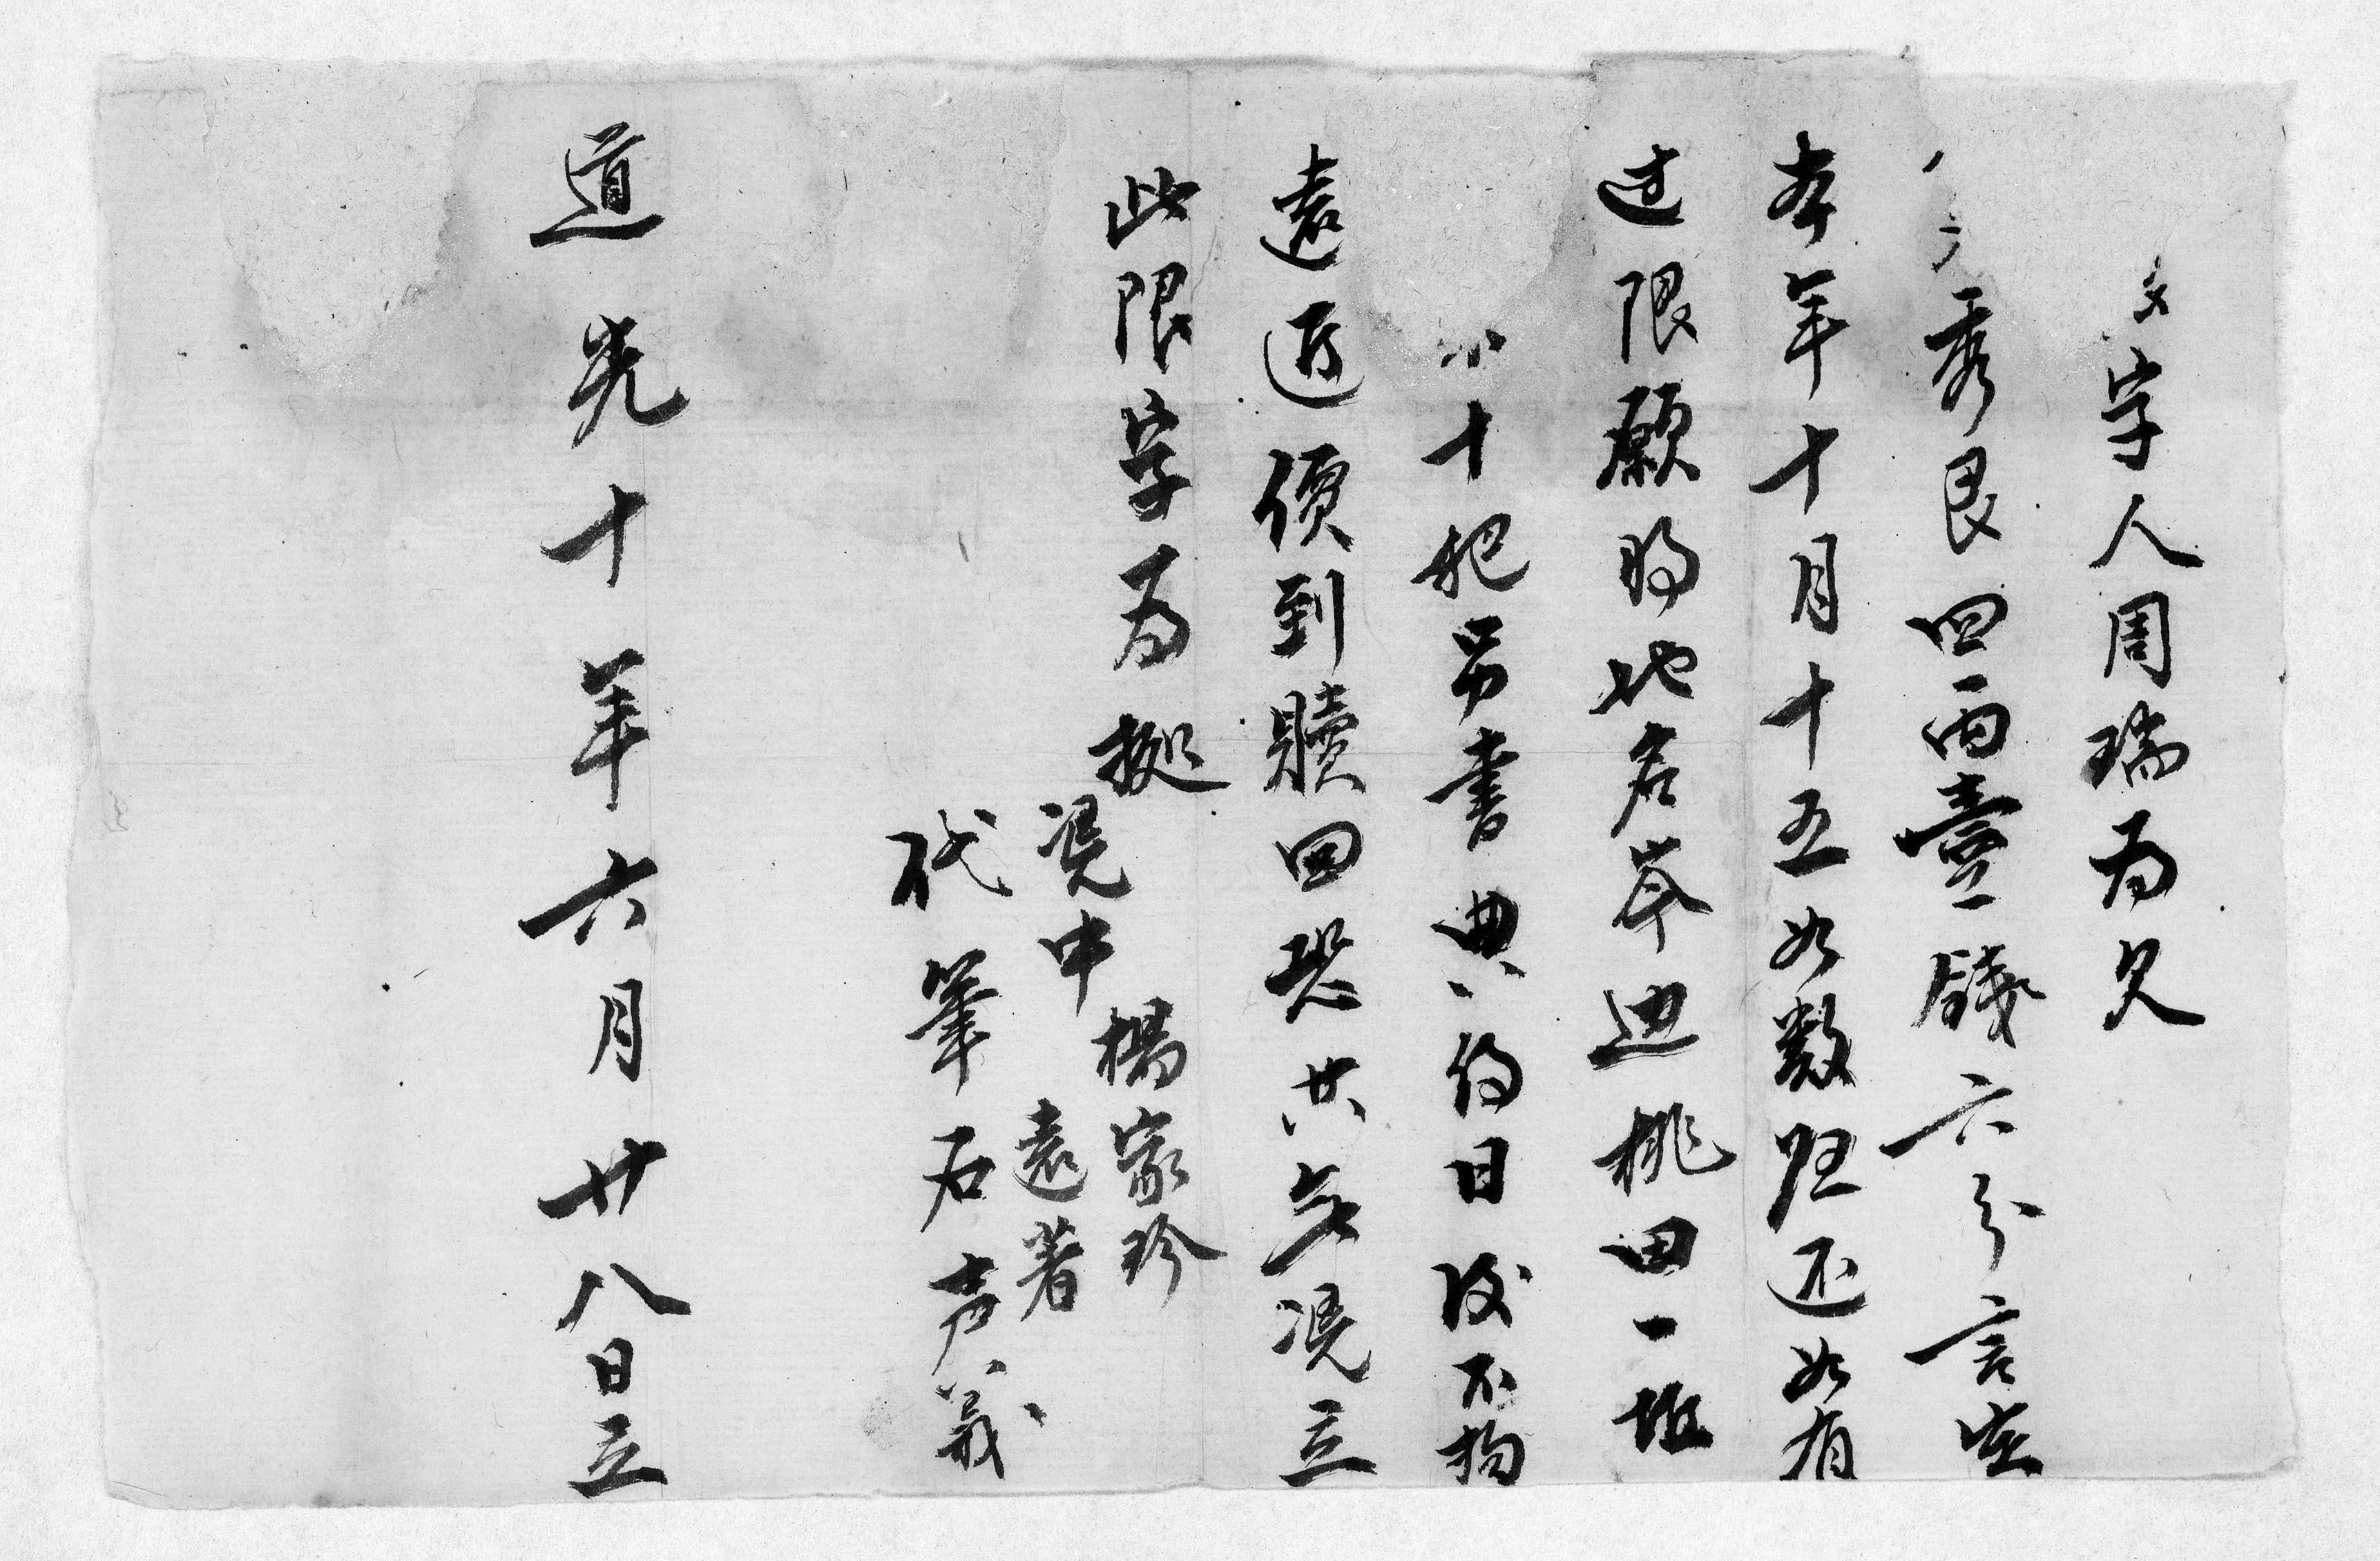 字人周瑞为欠
秀艮四両壹錢六分言定
本年十月十五如数归还如有
过限願将地名岑迪桃田一坵
十把另書典约日後不拘
遠近價到贖回恐口无凭立
此限字为拠
凭中楊家珍
遠著
代筆石声義
道光十年六月廿八日立